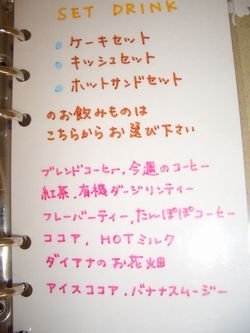 SET DRINK
ケーキセット
キッシュセット
ホットサンドセット
のお飲みものは
こちらからお選び下さい
ブレンドコーヒー, 今週のコーヒー
紅茶, 有機ダージリンティー
フレーバーティー, たんぽぽコーヒー
ココア, HOTミルク
ダイアナのお花畑
アイスココア, バナナスムージー